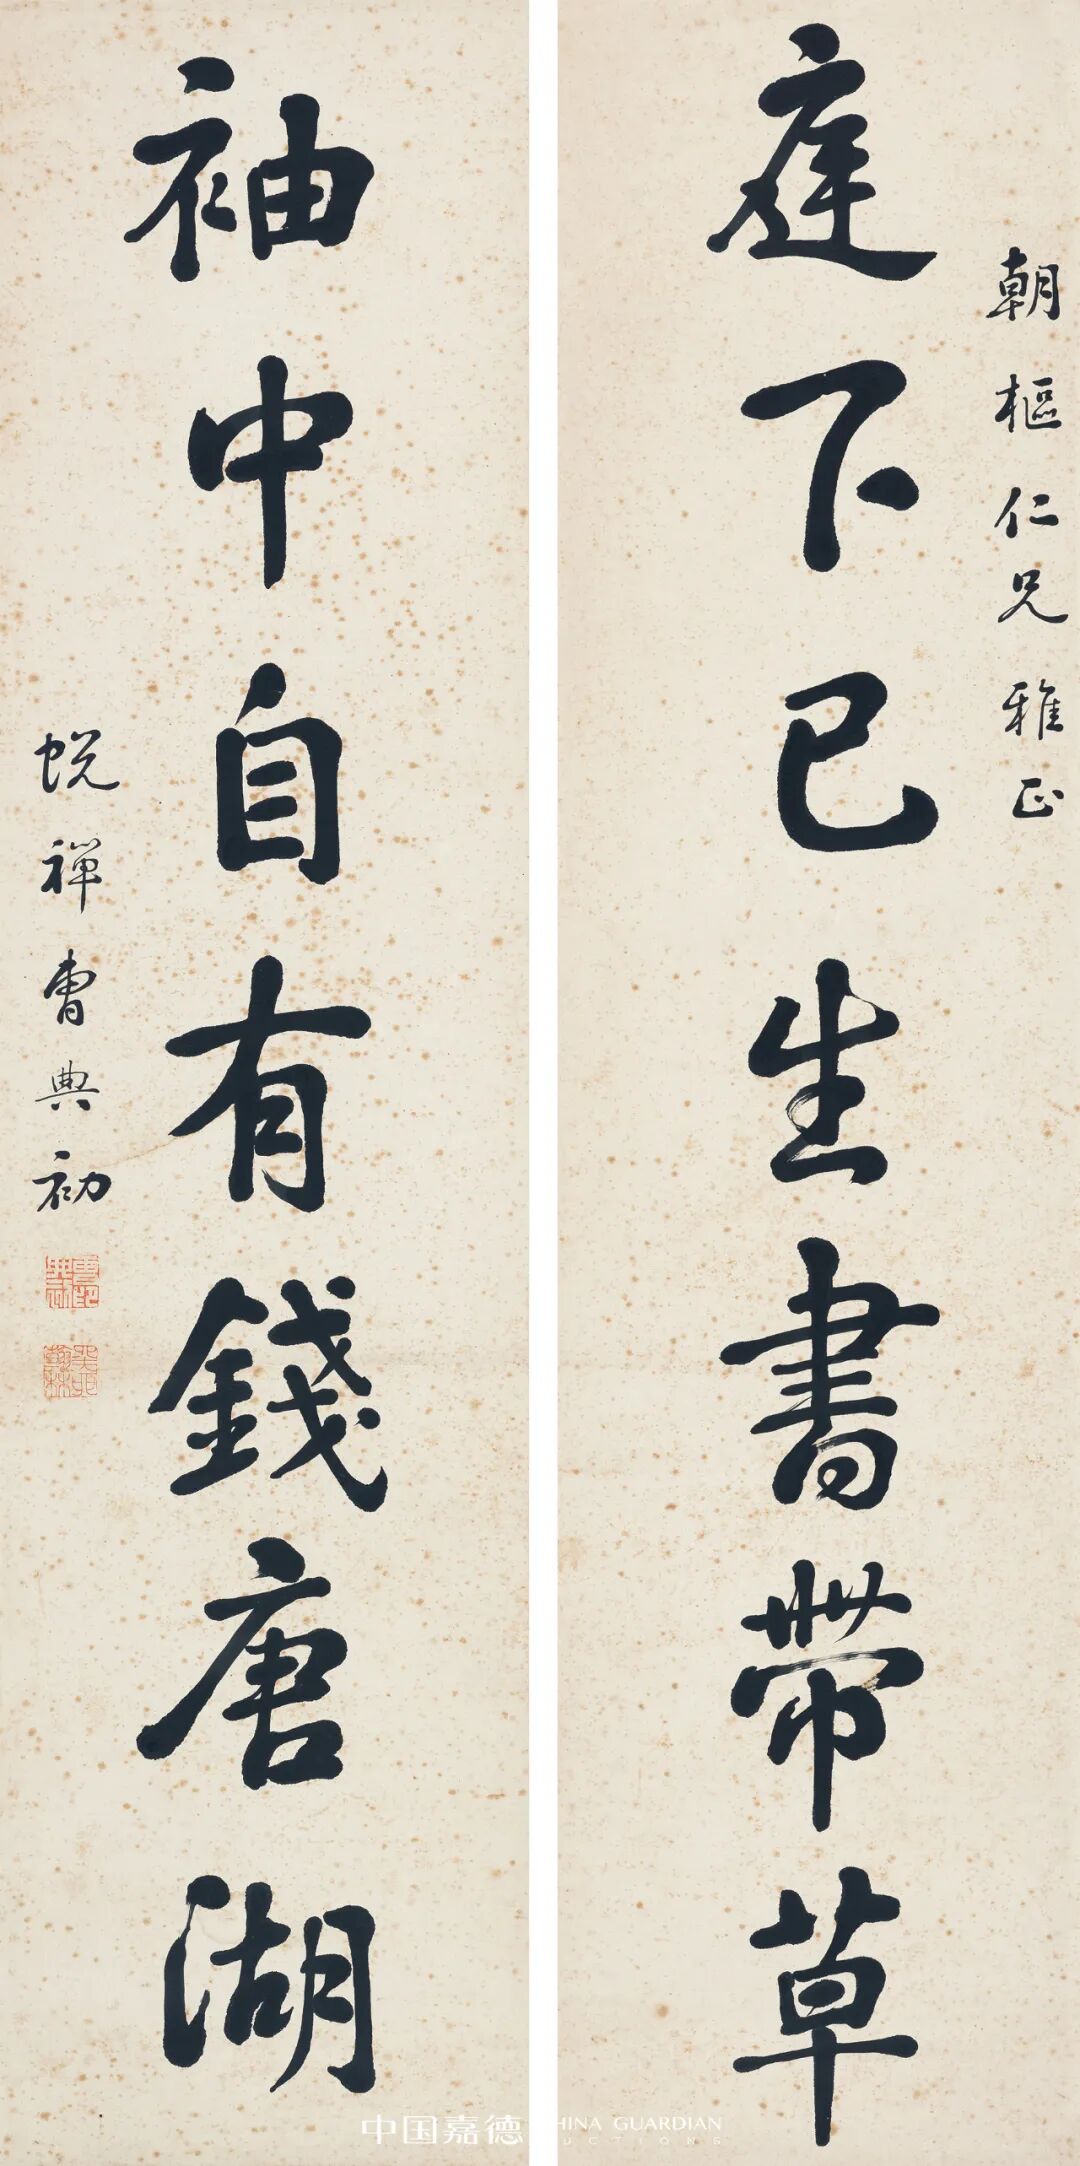 朝樞仁兄雅正
庭下已生書帶草
袖中自有錢唐湖
蜕禅曹典初
中国嘉德
CHINA GUARDIAN